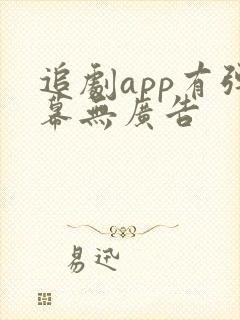 追劇app有彈
幕無廣告
易迅